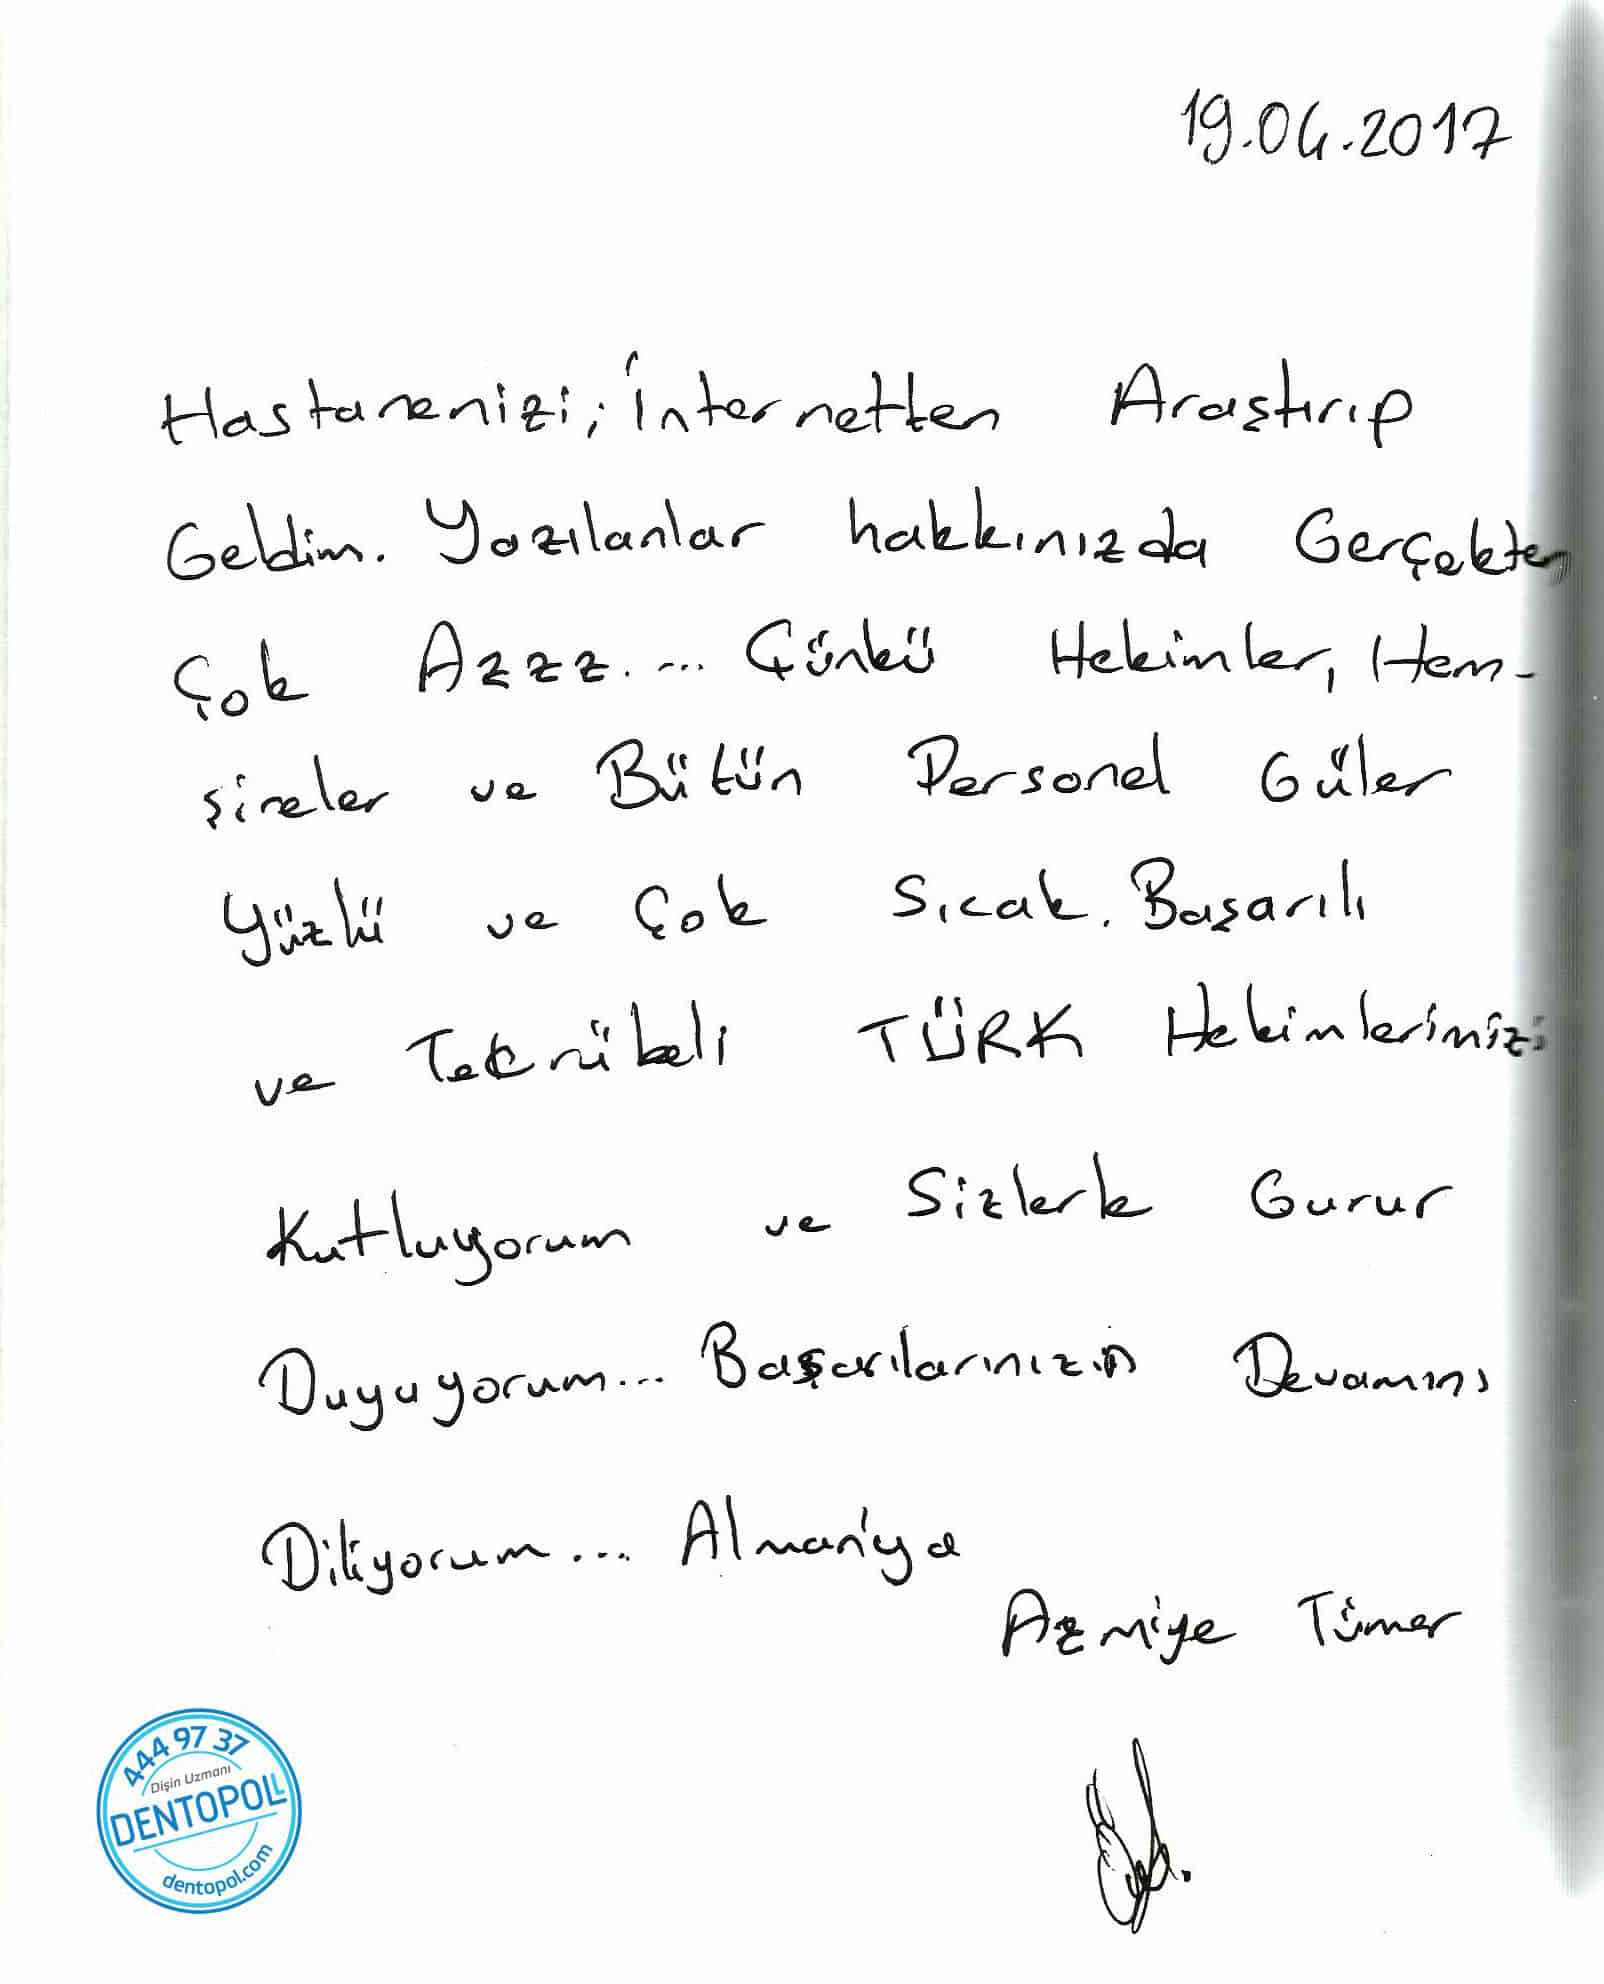 19.04.2017
Hastanenizi; İnternetten Araştırıp
Geldim. Yazılanlar hakkınızda Gerçekten
Çok Azzz.... Çünkü Hekimler, Hem-
şireler ve Bütün Personel Güler
Yüzlü ve Çok Sıcak. Başarılı
ve Tecrübeli TÜRK Hekimlerimizi
Kutluyorum ve Sizlerle Gurur
Duyuyorum... Başarılarınızın Devamını
Diliyorum... Almanya
Azmiye Tümer
444 97 37
Dişin Uzmanı
DENTOPOL
dentopol.com